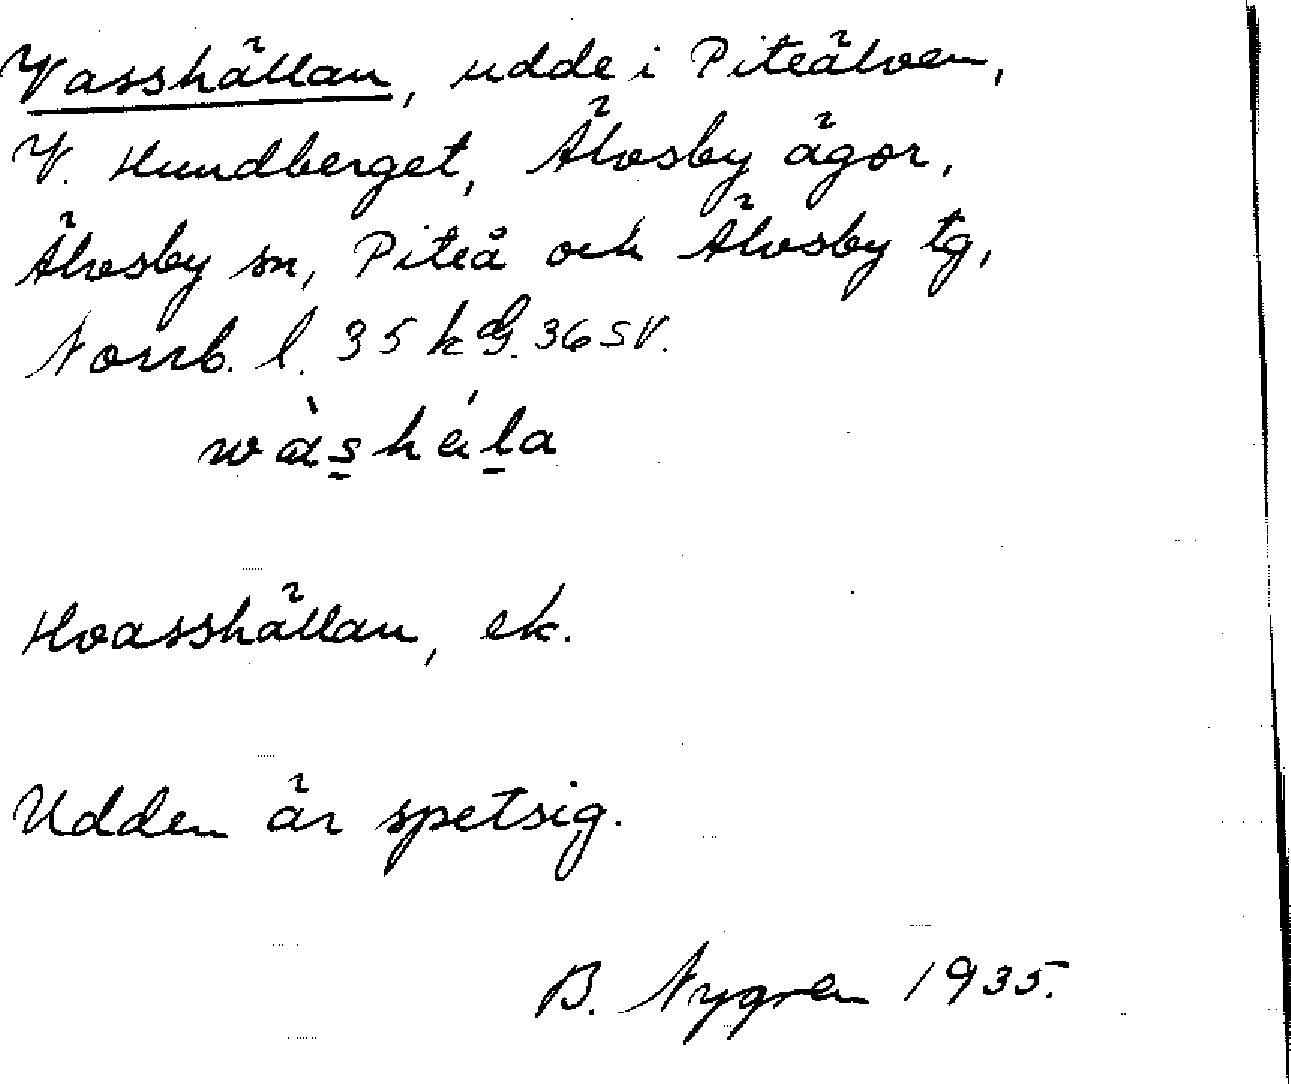 Vasshällan, udde i Piteälven,
V. Hundberget, Älvsby ägor,
Älvsby sn, Piteå och Älvsby tg,
Norrb. l. 35 k G. 36 SV.
Hvasshällan, ek.
Udden är spetsig.
B. Nygren 1935.